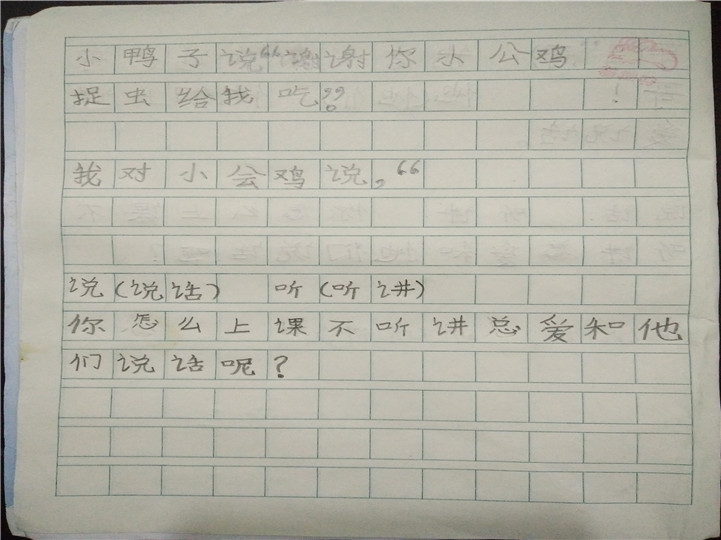 小鸭子说“谢谢你小公鸡
捉虫给我吃”。
我对小公鸡说，“
说（说话） 听（听讲）
你怎么上课不听讲总爱和他
们说话呢？